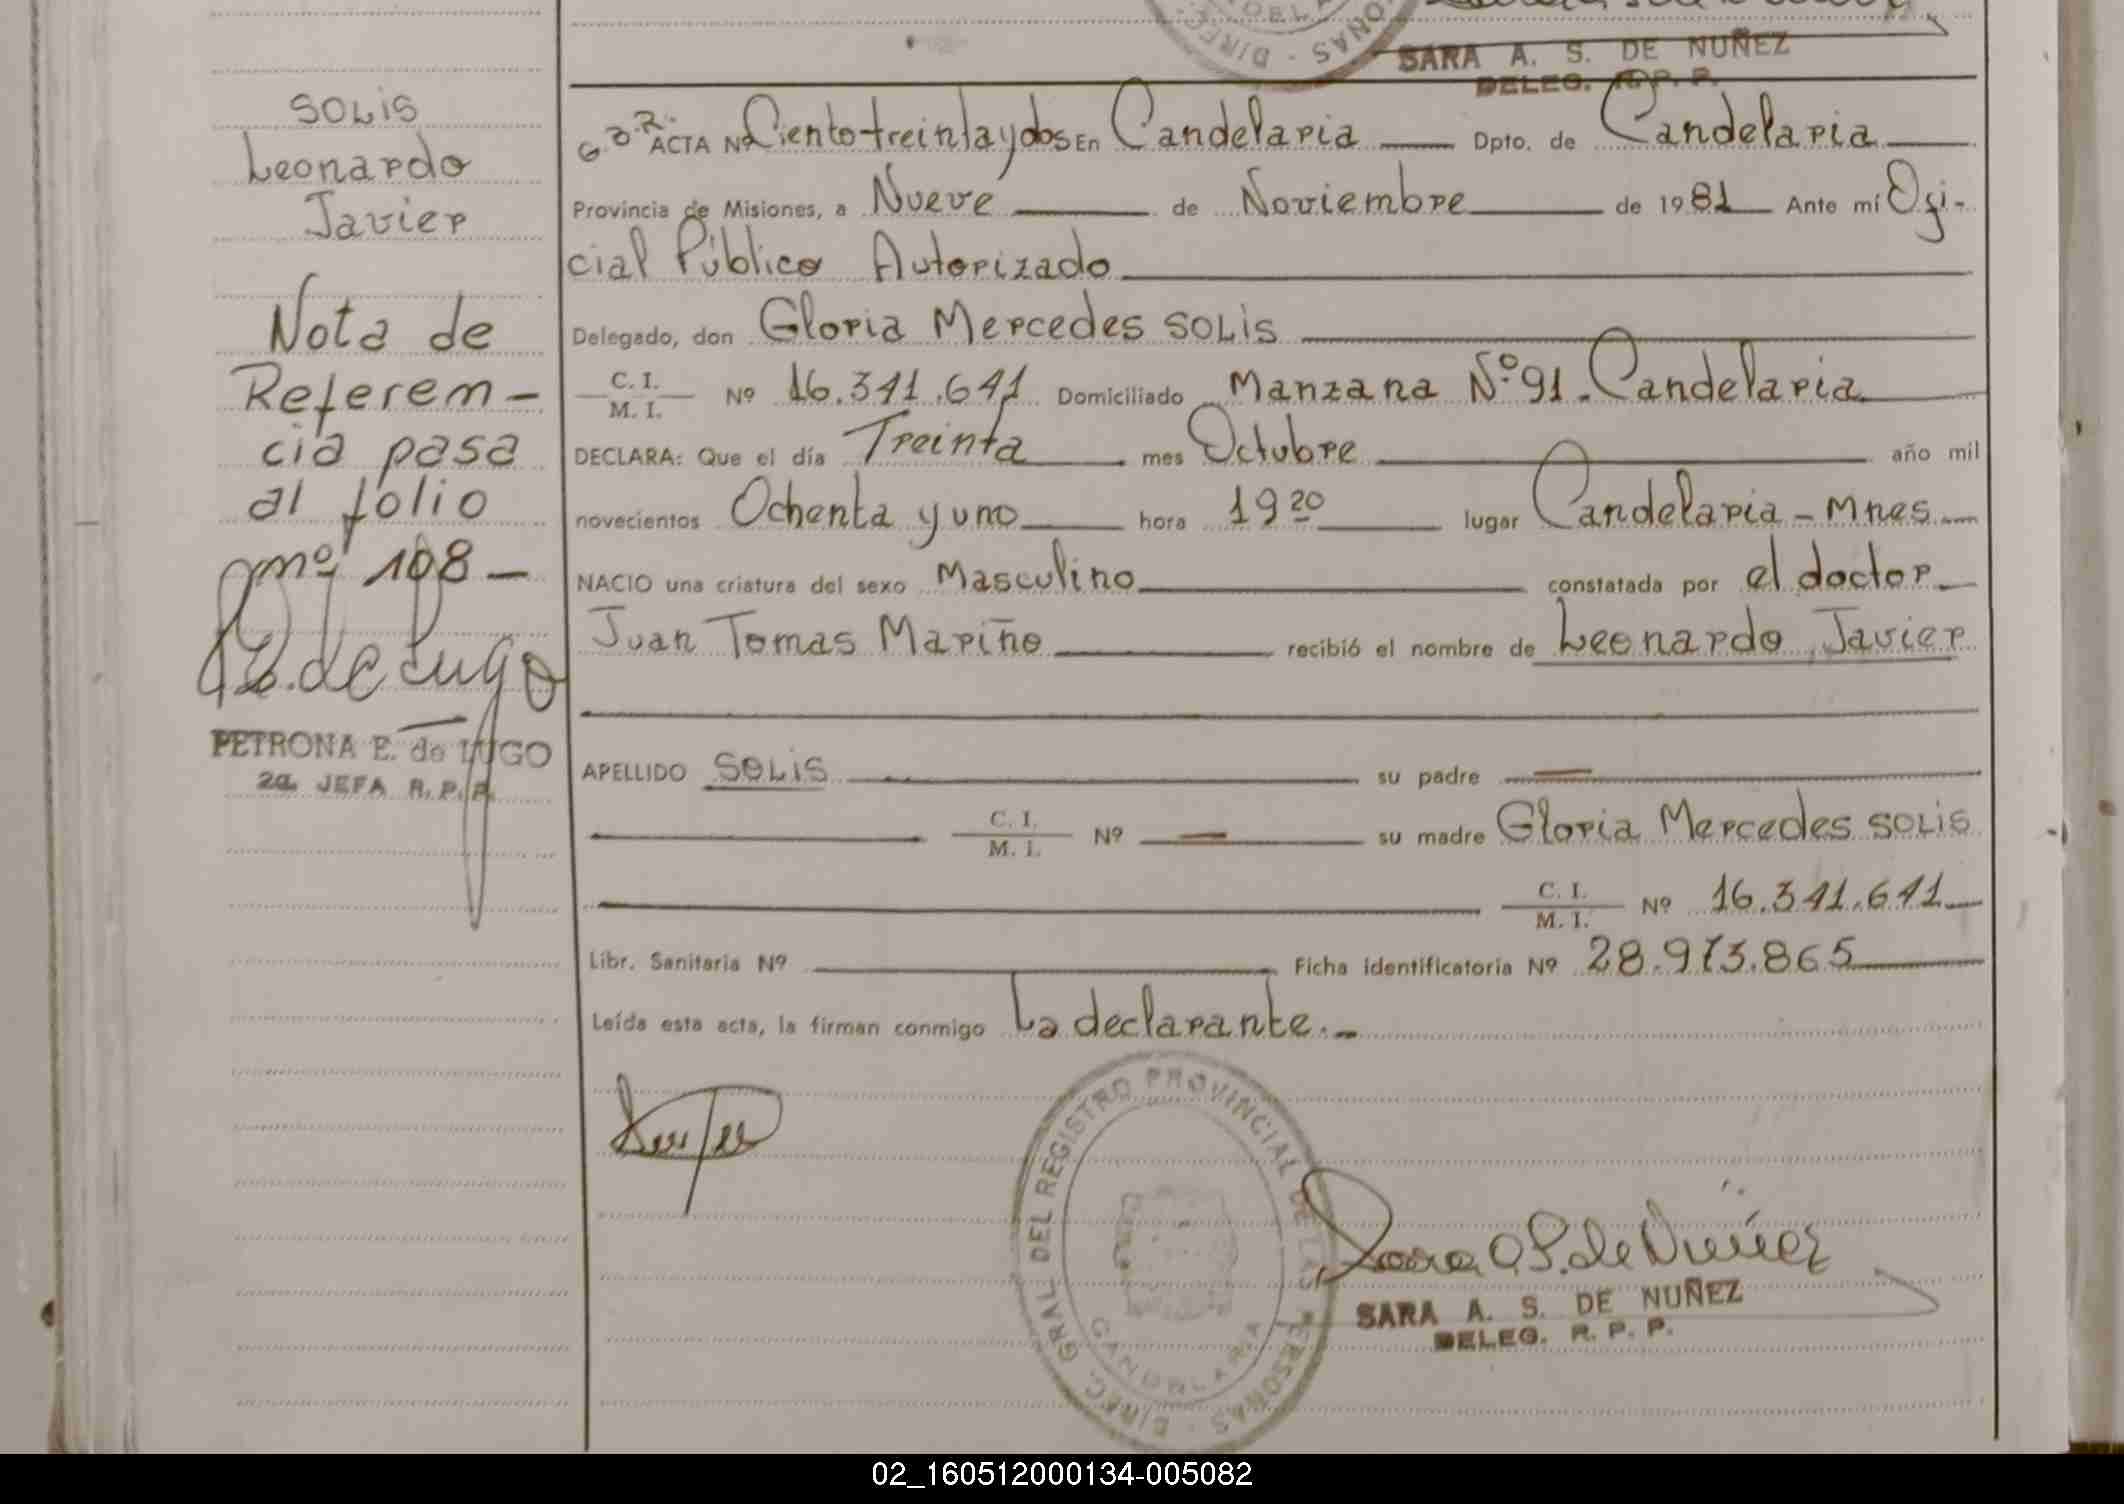 SARA A. S. DE NUÑEZ
DELEG. R. P. P.
SOLIS
Leonardo
Javier
Nota de
Referem-
cia pasa
al folio
nº 108-
PETRONA E. de LUGO
2a. JEFA R. P. P.
ACTA Nº Ciento treinta y dos En Candelaria Dpto. de Candelaria
Provincia de Misiones, a Nueve de Noviembre de 1981 Ante mí Ofi-
cial Público Autorizado
Delegado, don Gloria Mercedes SOLIS
C. I.
M. I.
Nº 16.341.641 Domiciliado Manzana Nº 91. Candelaria
DECLARA: Que el día Treinta mes Octubre año mil
novecientos Ochenta y uno hora 19 20 lugar Candelaria - Mnes.
NACIO una criatura del sexo Masculino constatada por el doctor
Juan Tomas Mariño recibió el nombre de Leonardo Javier
APELLIDO SOLIS su padre
C. I.
M. I.
Nº su madre Gloria Mercedes SOLIS
C. I.
M. I.
Nº 16.341.641
Libr. Sanitaria Nº Ficha identificatoria Nº 28.973.865
Leída esta acta, la firman conmigo La declarante.-
DIREC. GRAL DEL REGISTRO PROVINCIAL DE LAS PERSONAS
CANDELARIA
Sara A S. de Nuñez
SARA A. S. DE NUÑEZ
DELEG. R. P. P.
02_160512000134-005082